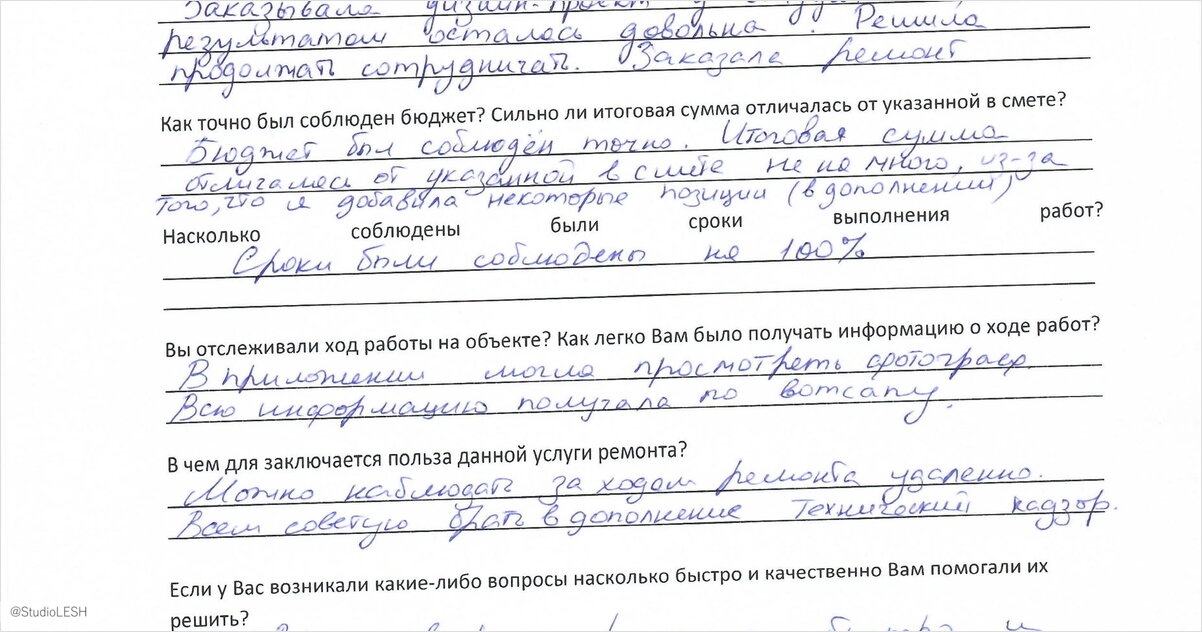 Заказывала дизайн-проект у
результатом осталась довольна. Решила
продолжать сотрудничать. Заказала ремонт
Как точно был соблюден бюджет? Сильно ли итоговая сумма отличалась от указанной в смете?
Бюджет был соблюдён точно. Итоговая сумма
отличалась от указанной в смете не на много, из-за
того, что я добавила некоторые позиции (в дополнении)
Насколько соблюдены были сроки выполнения работ?
Сроки были соблюдены на 100%
Вы отслеживали ход работы на объекте? Как легко Вам было получать информацию о ходе работ?
В приложении могла просмотреть фотограф.
Всю информацию получала по вотсапу.
В чем для заключается польза данной услуги ремонта?
Можно наблюдать за ходом ремонта удаленно.
Всем советую брать в дополнение технический надзор.
Если у Вас возникали какие-либо вопросы насколько быстро и качественно Вам помогали их
решить?
@StudioLESH